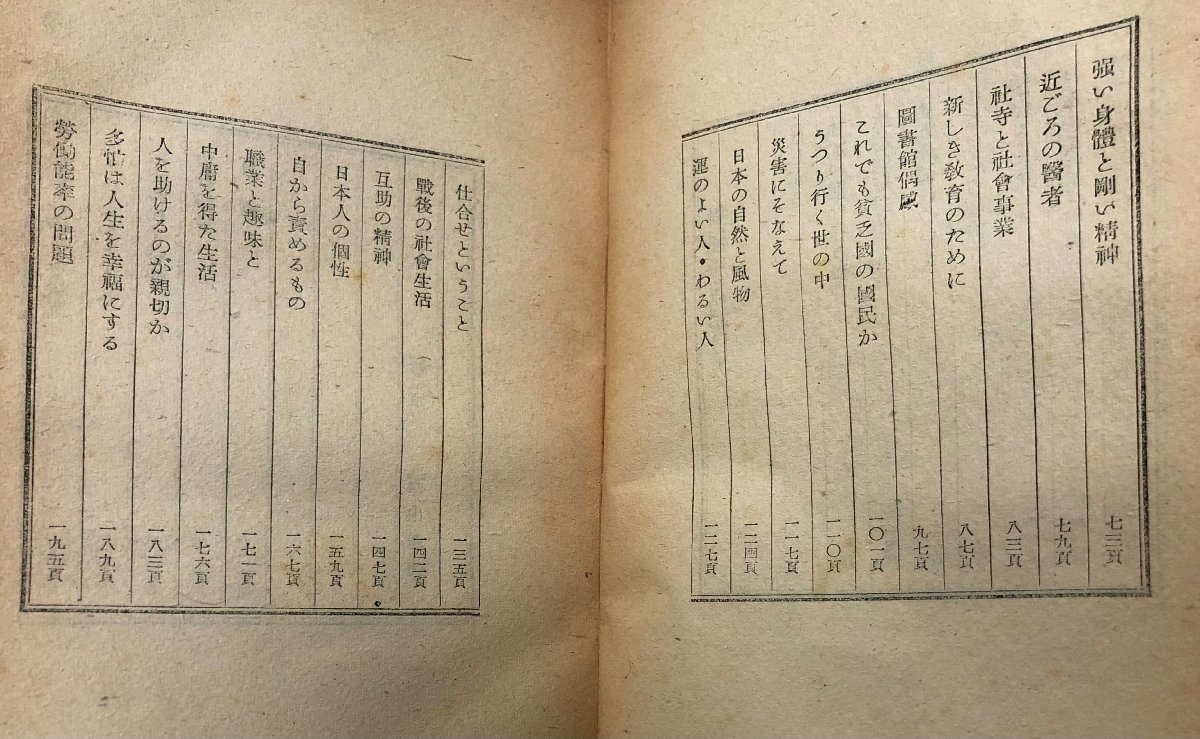 强い身體と剛い精神 七三頁
近ごろの醫者 七九頁
社寺と社會事業 八三頁
新しき敎育のために 八七頁
圖書館偶感 九七頁
これでも貧乏國の國民か 一〇一頁
うつり行く世の中 一一〇頁
災害にそなえて 一一七頁
日本の自然と風物 一二四頁
運のよい人・わるい人 一二七頁
仕合せということ 一三五頁
戰後の社會生活 一四二頁
互助の精神 一四七頁
日本人の個性 一五九頁
自から責めるもの 一六七頁
職業と趣味と 一七一頁
中庸を得た生活 一七六頁
人を助けるのが親切か 一八三頁
多忙は人生を幸福にする 一八九頁
勞働能率の問題 一九五頁